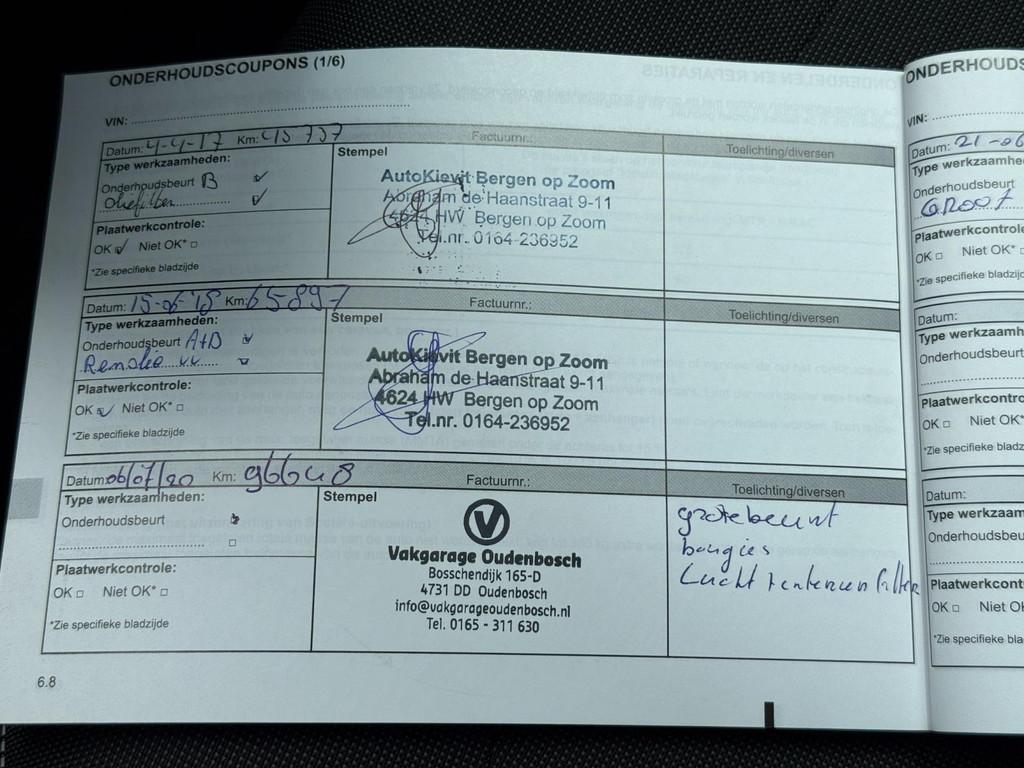 ONDERHOUDSCOUPONS (1/6)
VIN:
Datum: 4-4-17 Km: 45 757 Factuurnr.: Toelichting/diversen
Type werkzaamheden:
Onderhoudsbeurt B
Oliefilter
Plaatwerkcontrole:
OK Niet OK*
*Zie specifieke bladzijde
Stempel
AutoKievit Bergen op Zoom
Abraham de Haanstraat 9-11
4624 HW Bergen op Zoom
Tel.nr. 0164-236952
Datum: 15-06-18 Km: 65897 Factuurnr.: Toelichting/diversen
Type werkzaamheden:
Onderhoudsbeurt A+D
Remolie
Plaatwerkcontrole:
OK Niet OK*
*Zie specifieke bladzijde
Stempel
AutoKievit Bergen op Zoom
Abraham de Haanstraat 9-11
4624 HW Bergen op Zoom
Tel.nr. 0164-236952
Datum: 06/07/20 Km: 96648 Factuurnr.: Toelichting/diversen
Type werkzaamheden:
Onderhoudsbeurt
Plaatwerkcontrole:
OK Niet OK*
*Zie specifieke bladzijde
Stempel
V
Vakgarage Oudenbosch
Bosschendijk 165-D
4731 DD Oudenbosch
info@vakgarageoudenbosch.nl
Tel. 0165 - 311 630
grote beurt
bougies
Lucht
6.8
ONDERHOUDS
VIN:
Datum: 21-06
Type werkzaamhe
Onderhoudsbeurt
GROOT
Plaatwerkcontrole
OK Niet OK*
*Zie specifieke bladzijd
Datum:
Type werkzaamh
Onderhoudsbeurt
Plaatwerkcontro
OK Niet OK*
*Zie specifieke bladz
Datum:
Type werkzaam
Onderhoudsbeu
Plaatwerkcont
OK Niet O
*Zie specifieke bla